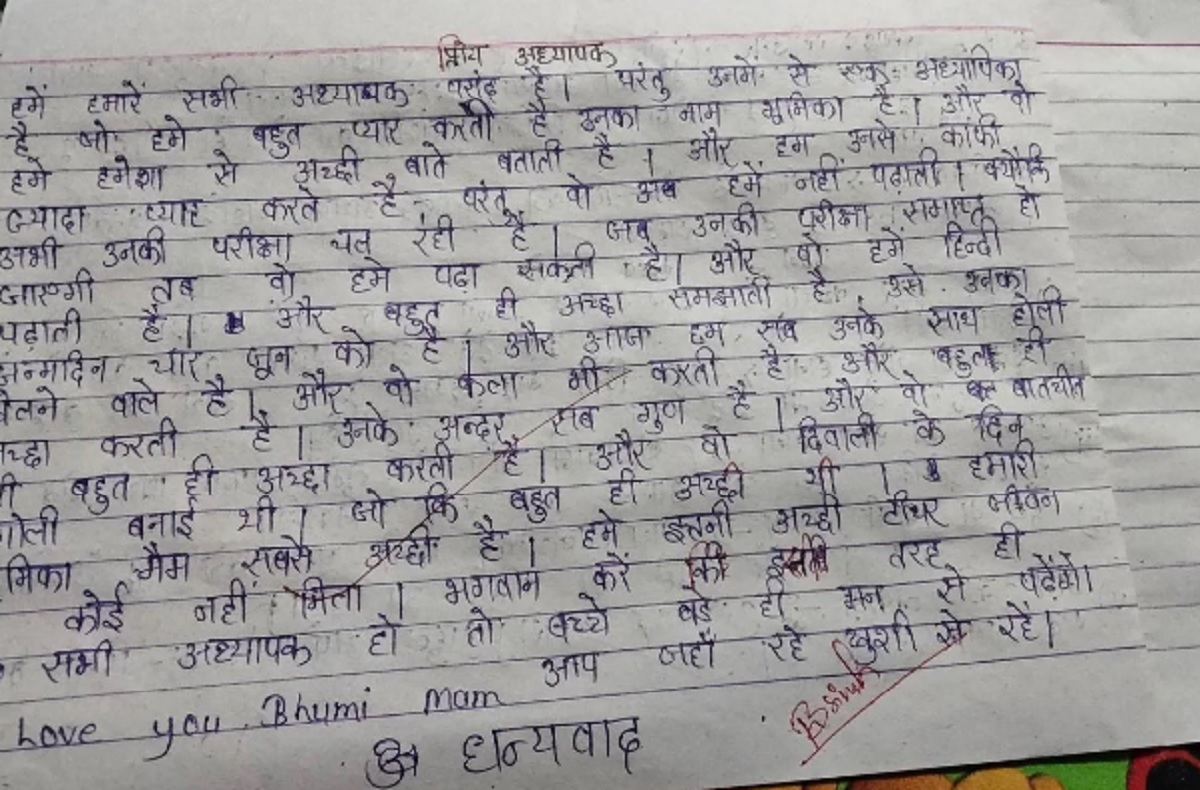 प्रिय अध्यापक
हमें हमारें सभी अध्यापक पसंद है। परंतु उनमें से एक अध्यापिका
है जो हमे बहुत प्यार करती है उनका नाम भूमिका है। और वो
हमे हमेशा से अच्छी बाते बताती है। और हम उनसे काफी
ज्यादा प्यार करते है परंतु वो अब हमें नहीं पढ़ाती। क्योंकि
अभी उनकी परीक्षा चल रही है। जब उनकी परीक्षा समाप्त हो
जाएगी तब वो हमे पढ़ा सकती है। और वो हमें हिन्दी
पढ़ाती है। और बहुत ही अच्छा समझाती है उसे उनका
जन्मदिन चार जून को है। और आज हम सब उनके साथ होली
खेलने वाले है। और वो कला भी करती है और बहुत ही
अच्छा करती है। उनके अन्दर सब गुण है। और वो बातचीत
भी बहुत ही अच्छा करती है। और वो दिवाली के दिन
रंगोली बनाई थी। जो कि बहुत ही अच्छी थी। हमारी
भूमिका मैम सबसे अच्छी है। हमे इतनी अच्छी टीचर जीवन
कोई नहीं मिला। भगवान करें की इसी तरह ही
सभी अध्यापक हो तो बच्चे बड़े ही मन से पढ़ेंगे।
आप जहाँ रहे खुशी से रहें।
Love you Bhumi mam
धन्यवाद